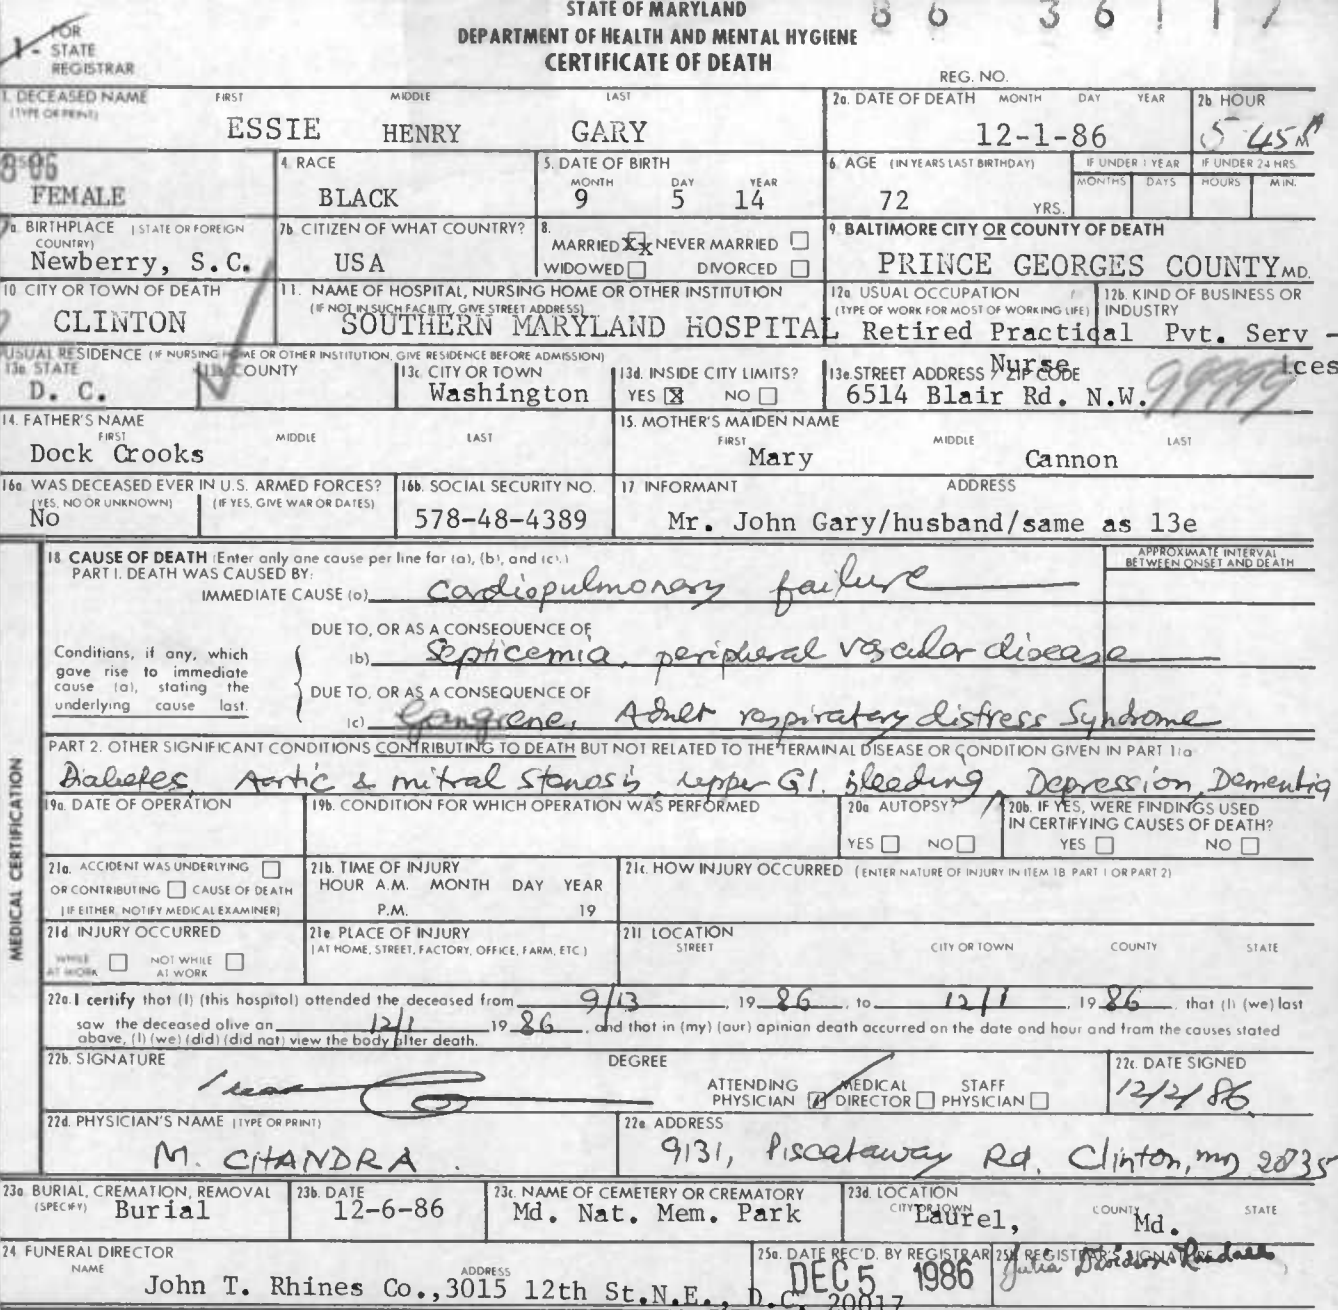 STATE OF MARYLAND
DEPARTMENT OF HEALTH AND MENTAL HYGIENE
CERTIFICATE OF DEATH
86 36117
1- FOR STATE REGISTRAR
REG. NO.
1. DECEASED NAME (TYPE OR PRINT) FIRST MIDDLE LAST
ESSIE HENRY GARY
2a. DATE OF DEATH MONTH DAY YEAR
12-1-86
2b. HOUR
5 45 AM
FEMALE
4. RACE
BLACK
5. DATE OF BIRTH
MONTH DAY YEAR
9 5 14
6. AGE (IN YEARS LAST BIRTHDAY)
72 YRS.
IF UNDER 1 YEAR
MONTHS DAYS
IF UNDER 24 HRS.
HOURS MIN.
7a. BIRTHPLACE (STATE OR FOREIGN COUNTRY)
Newberry, S.C.
7b. CITIZEN OF WHAT COUNTRY?
USA
8.
MARRIED XX NEVER MARRIED
WIDOWED DIVORCED
9. BALTIMORE CITY OR COUNTY OF DEATH
PRINCE GEORGES COUNTY MD.
10. CITY OR TOWN OF DEATH
CLINTON
11. NAME OF HOSPITAL, NURSING HOME OR OTHER INSTITUTION
(IF NOT IN SUCH FACILITY, GIVE STREET ADDRESS)
SOUTHERN MARYLAND HOSPITAL
12a. USUAL OCCUPATION
(TYPE OF WORK FOR MOST OF WORKING LIFE)
Retired Practical Nurse
12b. KIND OF BUSINESS OR INDUSTRY
Pvt. Serv - ices
USUAL RESIDENCE (IF NURSING HOME OR OTHER INSTITUTION, GIVE RESIDENCE BEFORE ADMISSION)
13a. STATE
D. C.
13b. COUNTY
13c. CITY OR TOWN
Washington
13d. INSIDE CITY LIMITS?
YES X NO
13e. STREET ADDRESS / ZIP CODE
6514 Blair Rd. N.W. 99999
14. FATHER'S NAME
FIRST MIDDLE LAST
Dock Crooks
15. MOTHER'S MAIDEN NAME
FIRST MIDDLE LAST
Mary Cannon
16a. WAS DECEASED EVER IN U.S. ARMED FORCES?
(YES, NO OR UNKNOWN) (IF YES, GIVE WAR OR DATES)
No
16b. SOCIAL SECURITY NO.
578-48-4389
17 INFORMANT ADDRESS
Mr. John Gary/husband/same as 13e
MEDICAL CERTIFICATION
18. CAUSE OF DEATH (Enter only one cause per line for (a), (b), and (c).)
PART I. DEATH WAS CAUSED BY:
IMMEDIATE CAUSE (a) Cardiopulmonary failure
APPROXIMATE INTERVAL BETWEEN ONSET AND DEATH
Conditions, if any, which gave rise to immediate cause (a), stating the underlying cause last.
DUE TO, OR AS A CONSEQUENCE OF
(b) Septicemia, peripheral vascular disease
DUE TO, OR AS A CONSEQUENCE OF
(c) Gangrene, Adult respiratory distress Syndrome
PART 2. OTHER SIGNIFICANT CONDITIONS CONTRIBUTING TO DEATH BUT NOT RELATED TO THE TERMINAL DISEASE OR CONDITION GIVEN IN PART 1(a
Diabetes, Aortic & mitral Stenosis, upper GI. bleeding, Depression, Dementia
19a. DATE OF OPERATION
19b. CONDITION FOR WHICH OPERATION WAS PERFORMED
20a AUTOPSY?
YES NO
20b. IF YES, WERE FINDINGS USED IN CERTIFYING CAUSES OF DEATH?
YES NO
21a. ACCIDENT WAS UNDERLYING
OR CONTRIBUTING CAUSE OF DEATH
(IF EITHER, NOTIFY MEDICAL EXAMINER)
21b. TIME OF INJURY
HOUR A.M. MONTH DAY YEAR
P.M. 19
21c. HOW INJURY OCCURRED (ENTER NATURE OF INJURY IN ITEM 18 PART 1 OR PART 2)
21d INJURY OCCURRED
WHILE AT WORK NOT WHILE AT WORK
21e. PLACE OF INJURY
(AT HOME, STREET, FACTORY, OFFICE, FARM, ETC.)
21f LOCATION
STREET CITY OR TOWN COUNTY STATE
22a. I certify that (I) (this hospital) attended the deceased from 9/13 19 86, to 12/1, 19 86, that (I) (we) last
saw the deceased alive on 12/1 19 86, and that in (my) (our) opinion death occurred on the date and hour and from the causes stated
above, (I) (we) (did) (did not) view the body after death.
22b. SIGNATURE DEGREE
ATTENDING PHYSICIAN MEDICAL DIRECTOR STAFF PHYSICIAN
22c. DATE SIGNED
12/2/86
22d. PHYSICIAN'S NAME (TYPE OR PRINT)
M. CHANDRA.
22e ADDRESS
9131, Piscataway Rd. Clinton, MD 20735
23a. BURIAL, CREMATION, REMOVAL
(SPECIFY) Burial
23b. DATE
12-6-86
23c. NAME OF CEMETERY OR CREMATORY
Md. Nat. Mem. Park
23d. LOCATION
CITY OR TOWN COUNTY STATE
Laurel, Md.
24 FUNERAL DIRECTOR
NAME ADDRESS
John T. Rhines Co.,3015 12th St.N.E., D.C. 20017
25a. DATE REC'D. BY REGISTRAR
DEC 5 1986
25b. REGISTRAR'S SIGNATURE
Julia Davidson-Randall